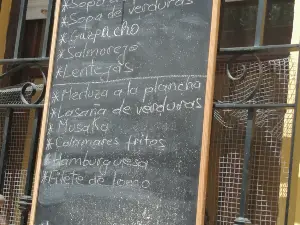 *Sopa
*Sopa de verduras
*Gazpacho
*Salmorejo
*Lentejas
*Merluza a la plancha
*Lasaña de verduras
*Musaka
*Calamares fritos
*Hamburguesa
*Filete de lomo